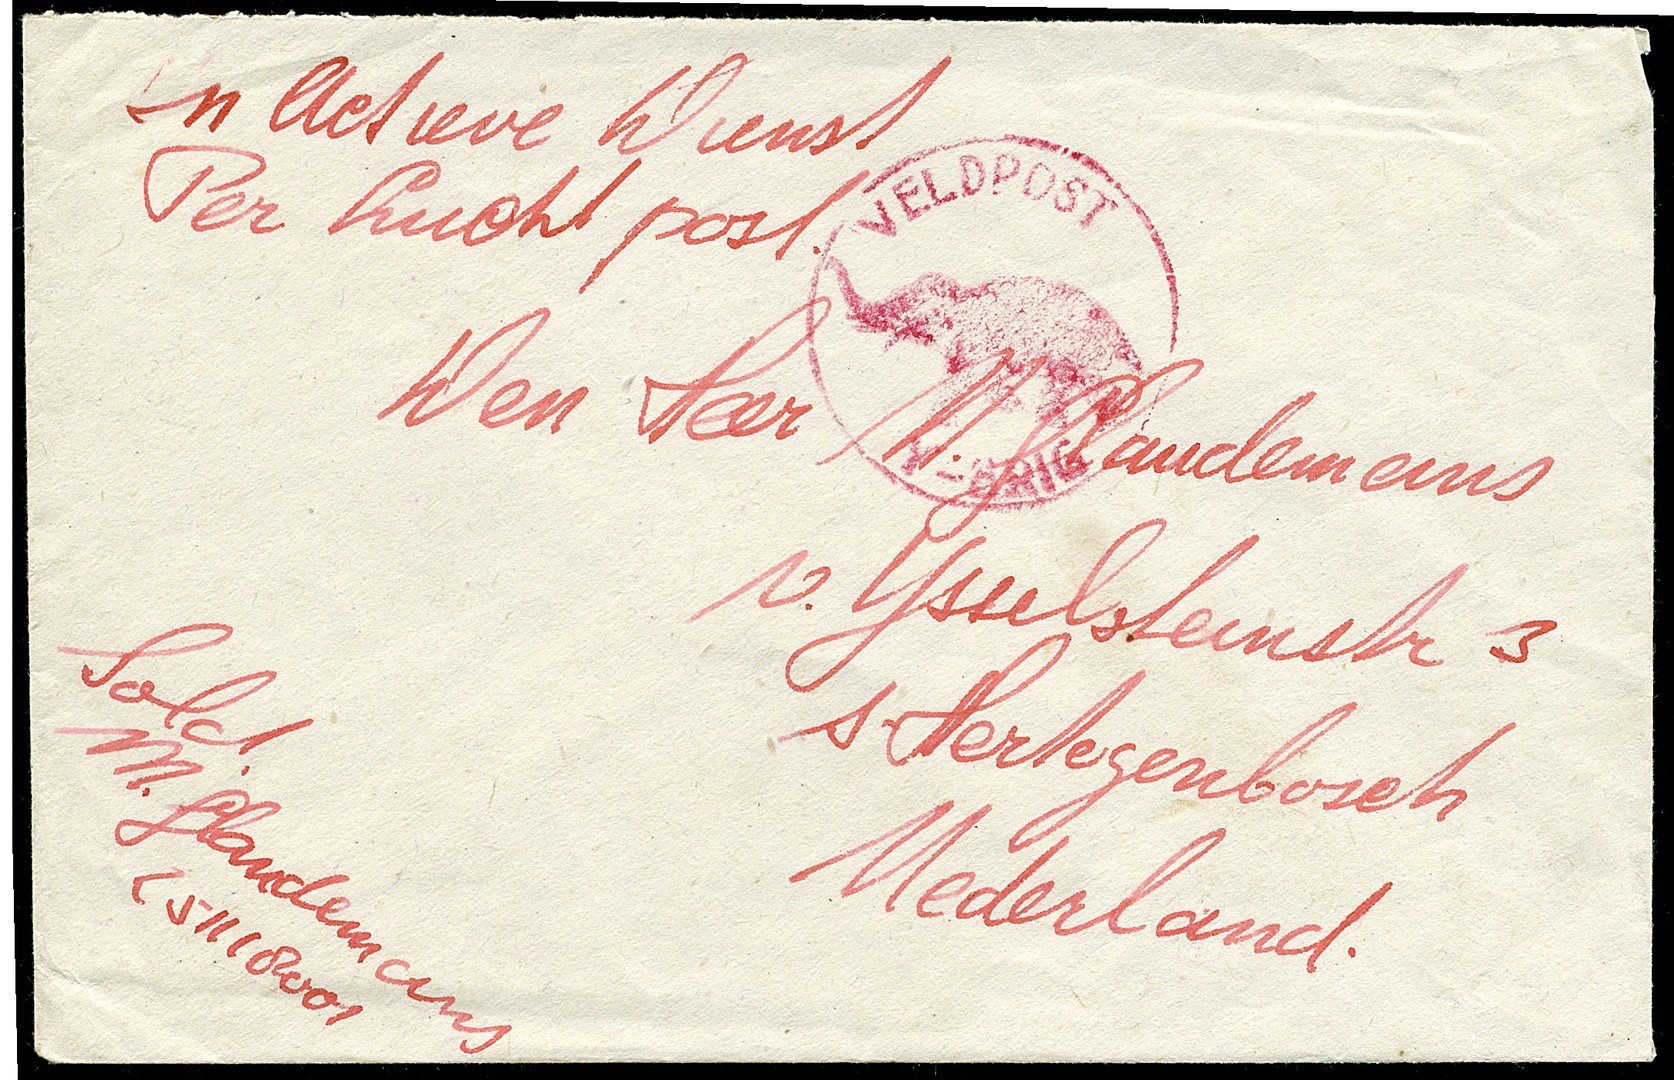 In Actieve Dienst
Per Luchtpost.
VELDPOST
V-BRIG
Den Heer M. Glaudemans
v. Ysselsteinstr 3
s-Hertogenbosch
Nederland.
Sold.
M. Glaudemans